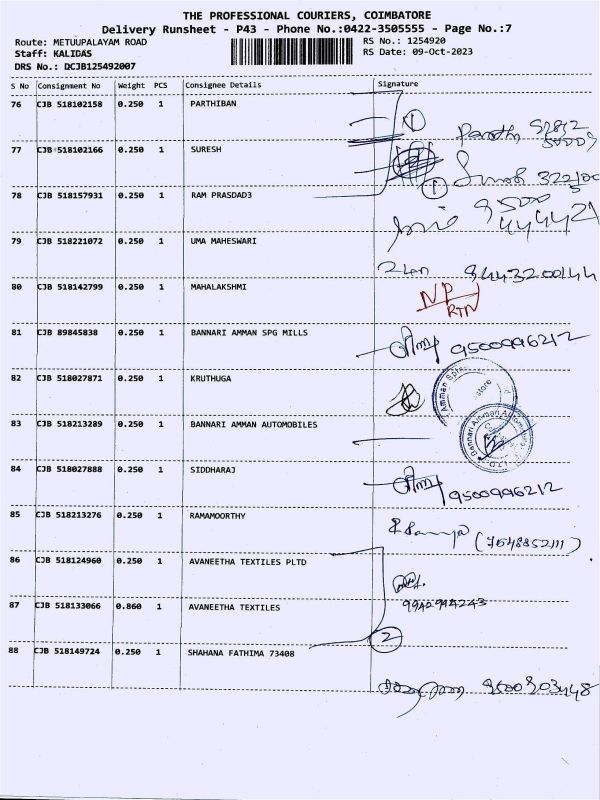 THE PROFESSIONAL COURIERS, COIMBATORE
Delivery Runsheet - P43 - Phone No.:0422-3505555 - Page No.:7
Route: METUUPALAYAM ROAD
RS No.: 1254920
Staff: KALIDAS
RS Date: 09-Oct-2023
DRS No.: DCJB125492007
S No Consignment No Weight PCS Consignee Details Signature
76 CJB 518102158 0.250 1 PARTHIBAN
1
77 CJB 518102166 0.250 1 SURESH
1
78 CJB 518157931 0.250 1 RAM PRASDAD3
9500
444421
79 CJB 518221072 0.250 1 UMA MAHESWARI
9443200144
80 CJB 518142799 0.250 1 MAHALAKSHMI
NP
RTN
81 CJB 89845838 0.250 1 BANNARI AMMAN SPG MILLS
9500996212
82 CJB 518027871 0.250 1 KRUTHUGA
83 CJB 518213289 0.250 1 BANNARI AMMAN AUTOMOBILES
84 CJB 518027888 0.250 1 SIDDHARAJ
9500996212
85 CJB 518213276 0.250 1 RAMAMOORTHY
86 CJB 518124960 0.250 1 AVANEETHA TEXTILES PLTD
87 CJB 518133066 0.860 1 AVANEETHA TEXTILES
9942994243
2
88 CJB 518149724 0.250 1 SHAHANA FATHIMA 73408